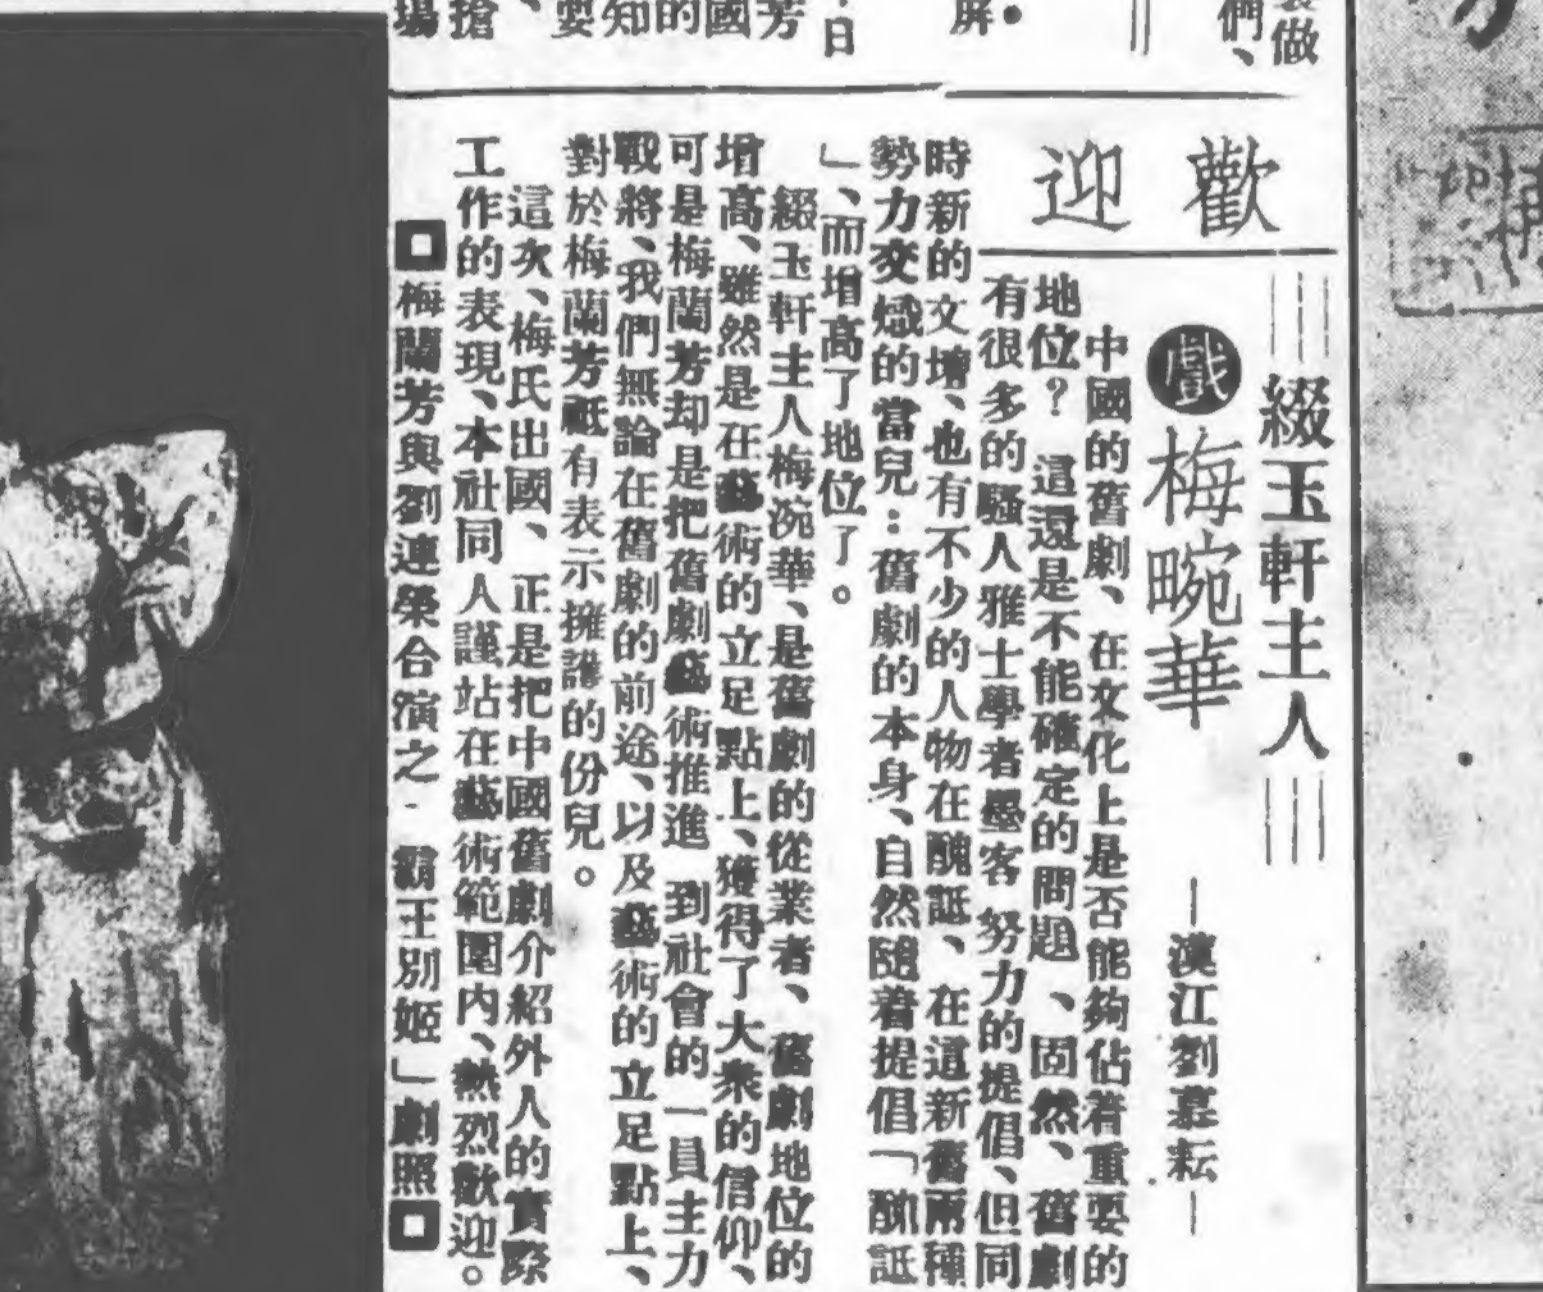 做
們、
屏●
日
芳
國
的
知
要
搶
場
歡迎
綴玉軒主人
戲梅畹華
—漢江劉慕耘—
中國的舊劇、在文化上是否能夠佔着重要的
地位？這還是不能確定的問題、固然、舊劇
有很多的騷人雅士學者墨客 努力的提倡、但同
時新的文壇、也有不少的人物在醜詆、在這新舊兩種
勢力交熾的當兒：舊劇的本身、自然隨着提倡「醜詆
」、而增高了地位了。
綴玉軒主人梅浣華、是舊劇的從業者、舊劇地位的
增高、雖然是在藝術的立足點上、獲得了大衆的信仰、
可是梅蘭芳却是把舊劇藝術推進 到社會的一員主力
戰將、我們無論在舊劇的前途、以及藝術的立足點上、
對於梅蘭芳祗有表示擁護的份兒。
這次、梅氏出國、正是把中國舊劇介紹外人的實際
工作的表現、本社同人謹站在藝術範圍內、熱烈歡迎。
□梅蘭芳與劉連榮合演之 霸王別姬」劇照□